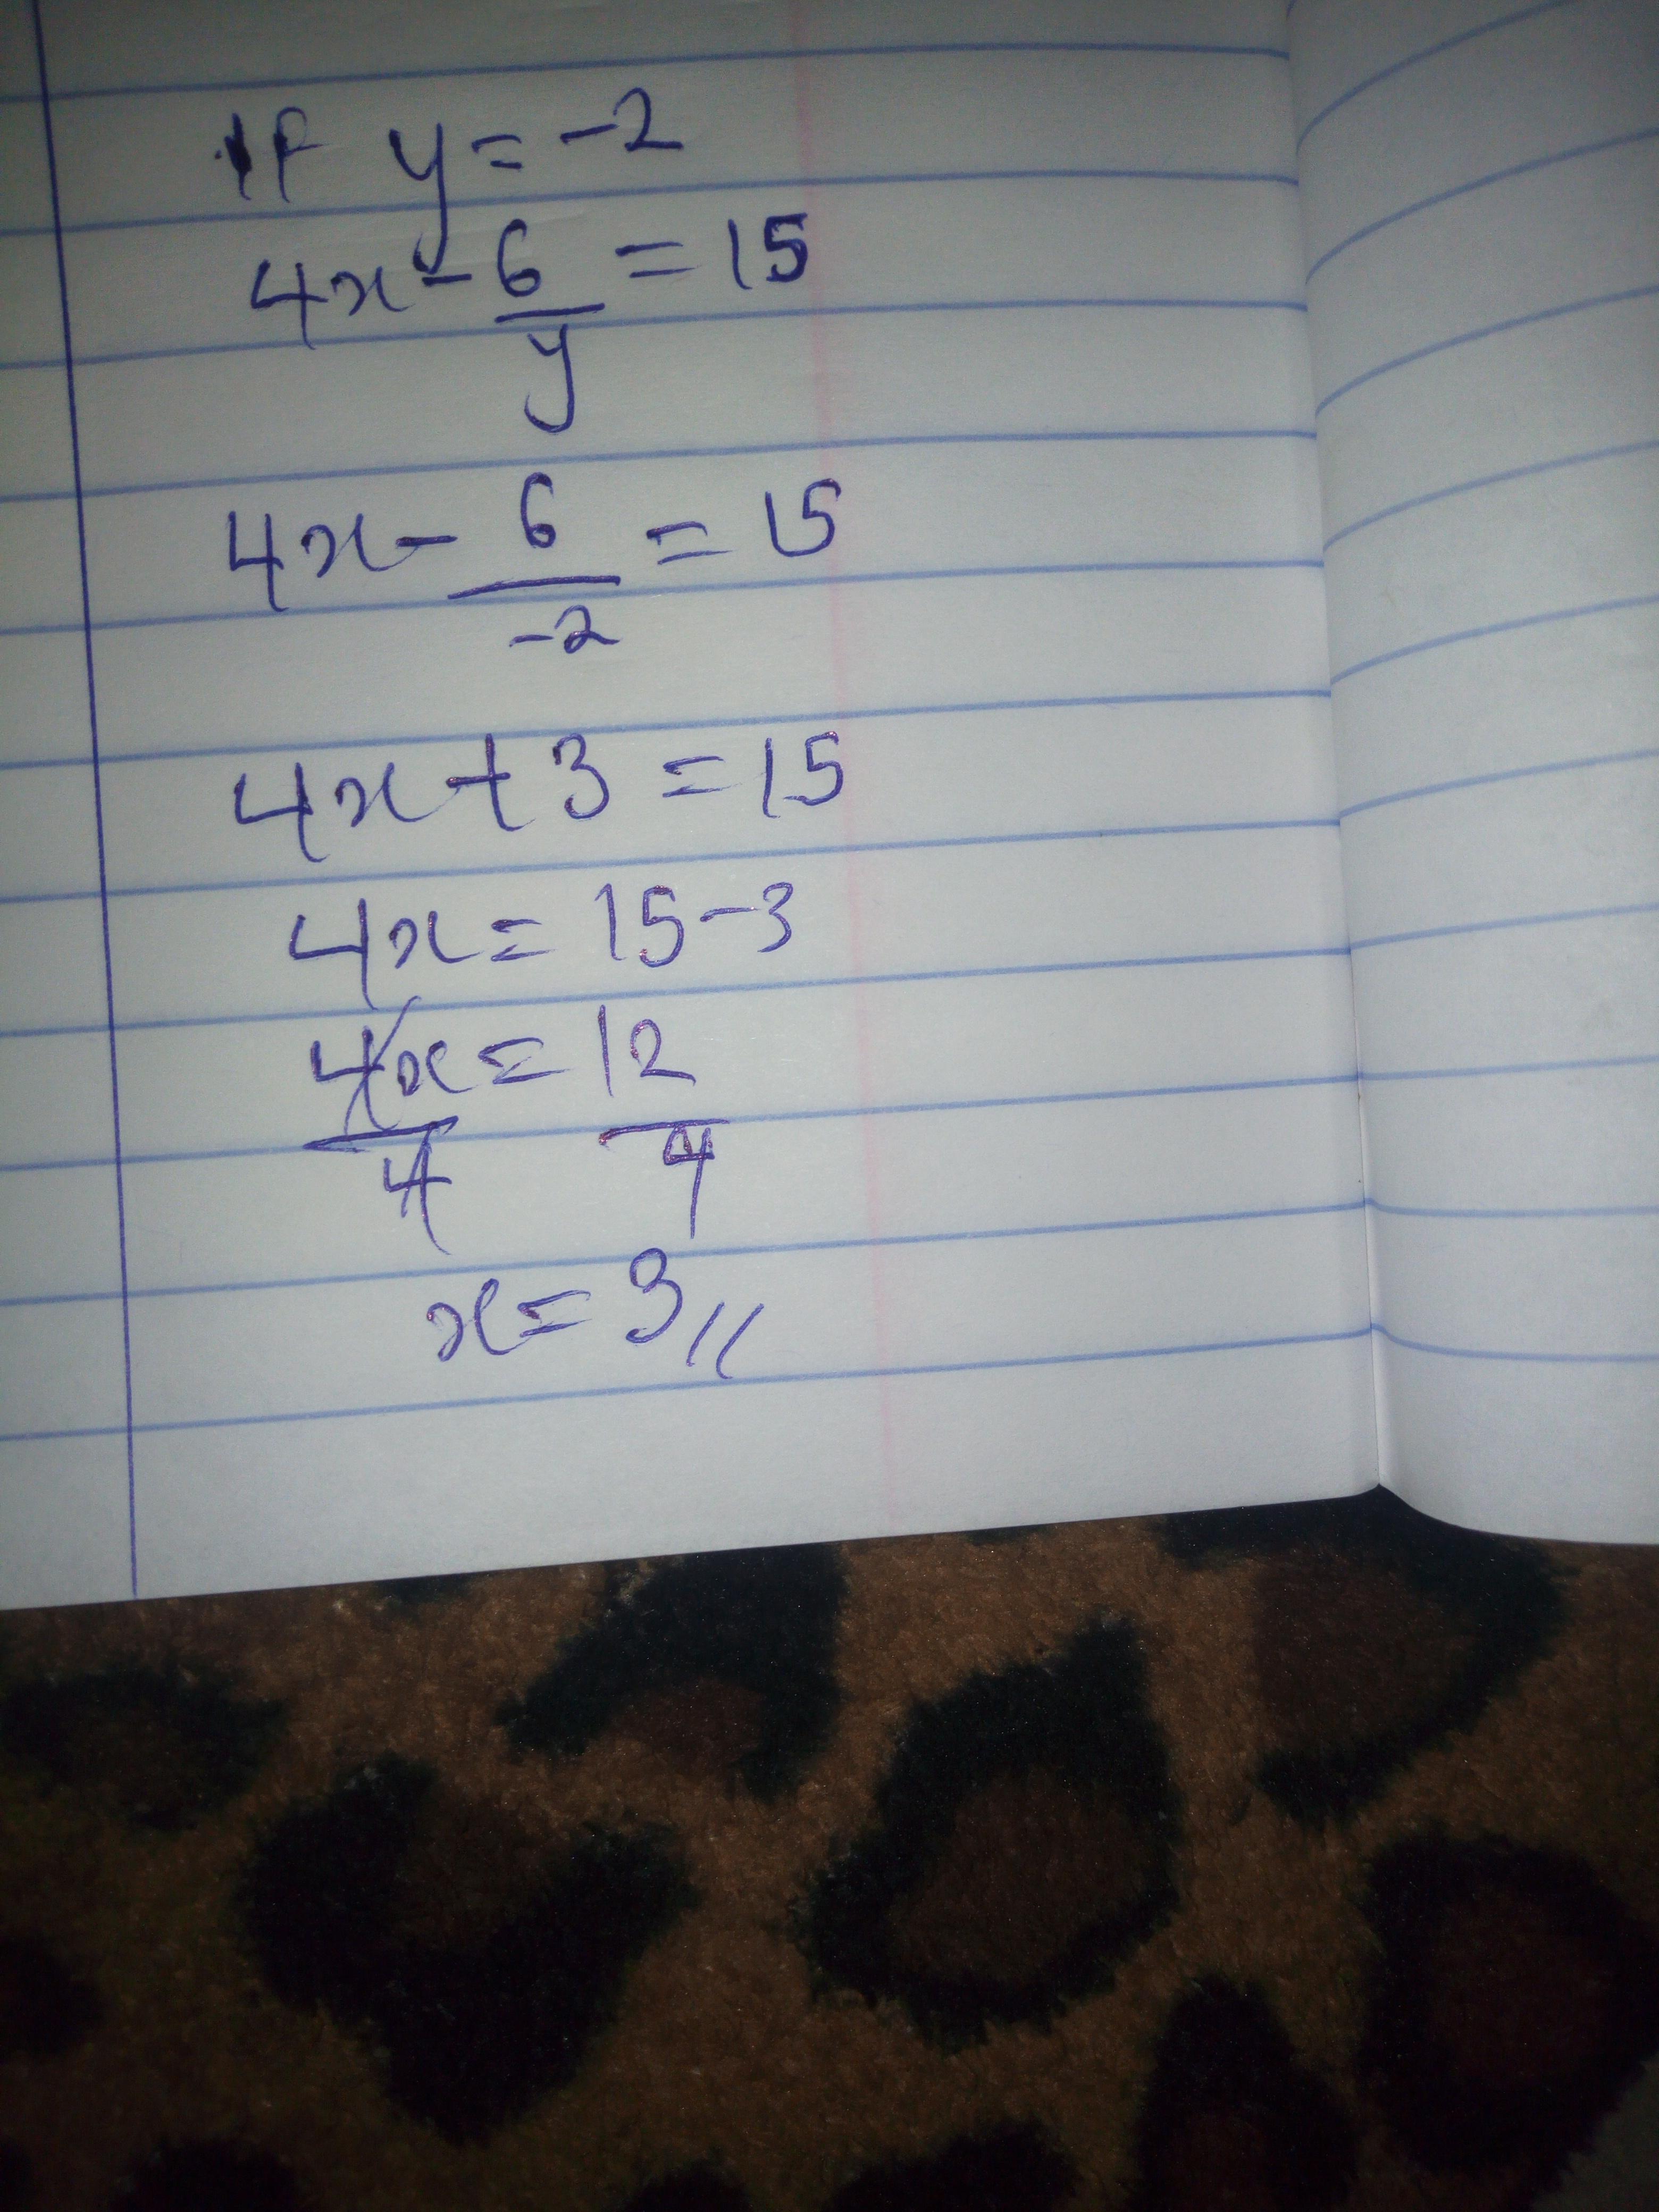 If y = -2
4x - 6/y = 15
4x - 6/-2 = 15
4x + 3 = 15
4x = 15 - 3
4x/4 = 12/4
x = 3//